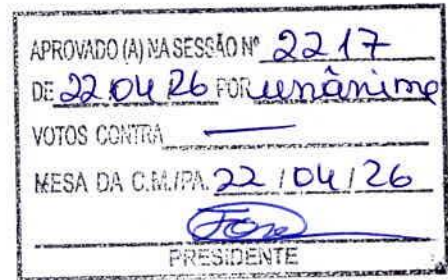 APROVADO (A) NA SESSÃO Nº 2217
DE 22 04 26 POR unânime
VOTOS CONTRA —
MESA DA C.M./PA. 22 / 04 / 26
PRESIDENTE